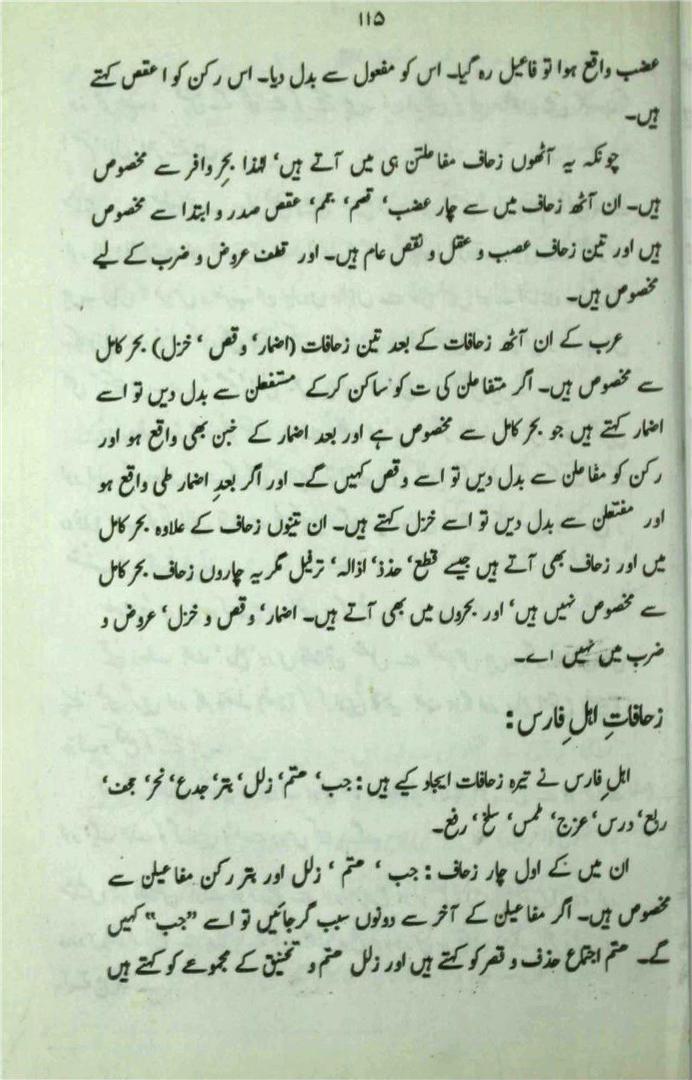 ۱۱۵
عضب واقع ہوا تو فاعیل رہ گیا۔ اس کو مفعول سے بدل دیا۔ اس رکن کو اعقص کہتے
ہیں۔
چونکہ یہ آٹھوں زحاف مفاعلتن ہی میں آتے ہیں‘ لہٰذا بحرِ وافر سے مخصوص
ہیں۔ ان آٹھ زحاف میں سے چار عضب‘ قصم‘ جمم‘ عقص صدر و ابتدا سے مخصوص
ہیں اور تین زحاف عصب و عقل و نقص عام ہیں۔ اور قطف عروض و ضرب کے لیے
مخصوص ہیں۔
عرب کے ان آٹھ زحافات کے بعد تین زحافات (اضمار‘ وقص ‘ خزل) بحر کامل
سے مخصوص ہیں۔ اگر متفاعلن کی ت کو ساکن کرکے مستفعلن سے بدل دیں تو اسے
اضمار کہتے ہیں جو بحر کامل سے مخصوص ہے اور بعد اضمار کے خبن بھی واقع ہو اور
رکن کو مفاعلن سے بدل دیں تو اسے وقص کہیں گے۔ اور اگر بعدِ اضمار طی واقع ہو
اور مفتعلن سے بدل دیں تو اسے خزل کہتے ہیں۔ ان تینوں زحاف کے علاوہ بحر کامل
میں اور زحاف بھی آتے ہیں جیسے قطع‘ حذذ‘ اذالہ‘ ترفیل مگر یہ چاروں زحاف بحر کامل
سے مخصوص نہیں ہیں‘ اور بحروں میں بھی آتے ہیں۔ اضمار‘ وقص و خزل‘ عروض و
ضرب میں نہیں اے۔
زحافاتِ اہلِ فارس :
اہلِ فارس نے تیرہ زحافات ایجاد کیے ہیں : جب‘ ھتم‘ زلل‘ بتر‘ جدع‘ نحر‘ جحف‘
ربع‘ درس‘ عرج‘ طمس‘ سلخ‘ رفع۔
ان میں کے اول چار زحاف : جب ‘ ھتم ‘ زلل اور بتر رکن مفاعیلن سے
مخصوص ہیں۔ اگر مفاعیلن کے آخر سے دونوں سبب گر جائیں تو اسے ”جب“ کہیں
گے۔ ھتم اجتماع حذف و قصر کو کہتے ہیں اور زلل ھتم و تخنیق کے مجموعے کو کہتے ہیں